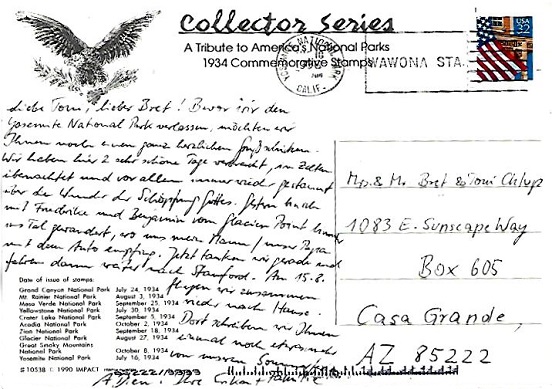 Collector Series
A Tribute to America's National Parks
1934 Commemorative Stamps
YOSEMITE NATIONAL PARK
CALIF.
WAWONA STA.
USA 32
Liebe Toni, lieber Bret! Bevor wir den
Yosemite National Park verlassen, möchten wir
Ihnen noch einen ganz herzlichen Gruß schicken.
Wir haben hier 2 sehr schöne Tage verbracht, im Zelten
übernachtet und vor allem immer wieder gestaunt
über die Wunder der Schöpfung Gottes. Gestern bin ich
mit Friederike und Benjamin vom Glacier Point
ins Tal gewandert, wo uns mein Mann / unser Papa
mit dem Auto empfing. Jetzt tanken wir gerade und
fahren dann weiter nach Stanford. Am 15.8.
fliegen wir zusammen
wieder nach Hause.
Dort schreiben wir Ihnen
einmal noch etwas mehr
von unserem
Ihre Familie
Mrs. & Mr. Bret & Toni
1083 E. Sunscape Way
Box 605
Casa Grande,
AZ 85222
Date of issue of stamps:
Grand Canyon National Park July 24, 1934
Mt. Rainier National Park August 3, 1934
Mesa Verde National Park September 25, 1934
Yellowstone National Park July 30, 1934
Crater Lake National Park September 5, 1934
Acadia National Park October 2, 1934
Zion National Park September 18, 1934
Glacier National Park August 27, 1934
Great Smoky Mountains
National Park October 8, 1934
Yosemite National Park July 16, 1934
# 10538 © 1990 IMPACT